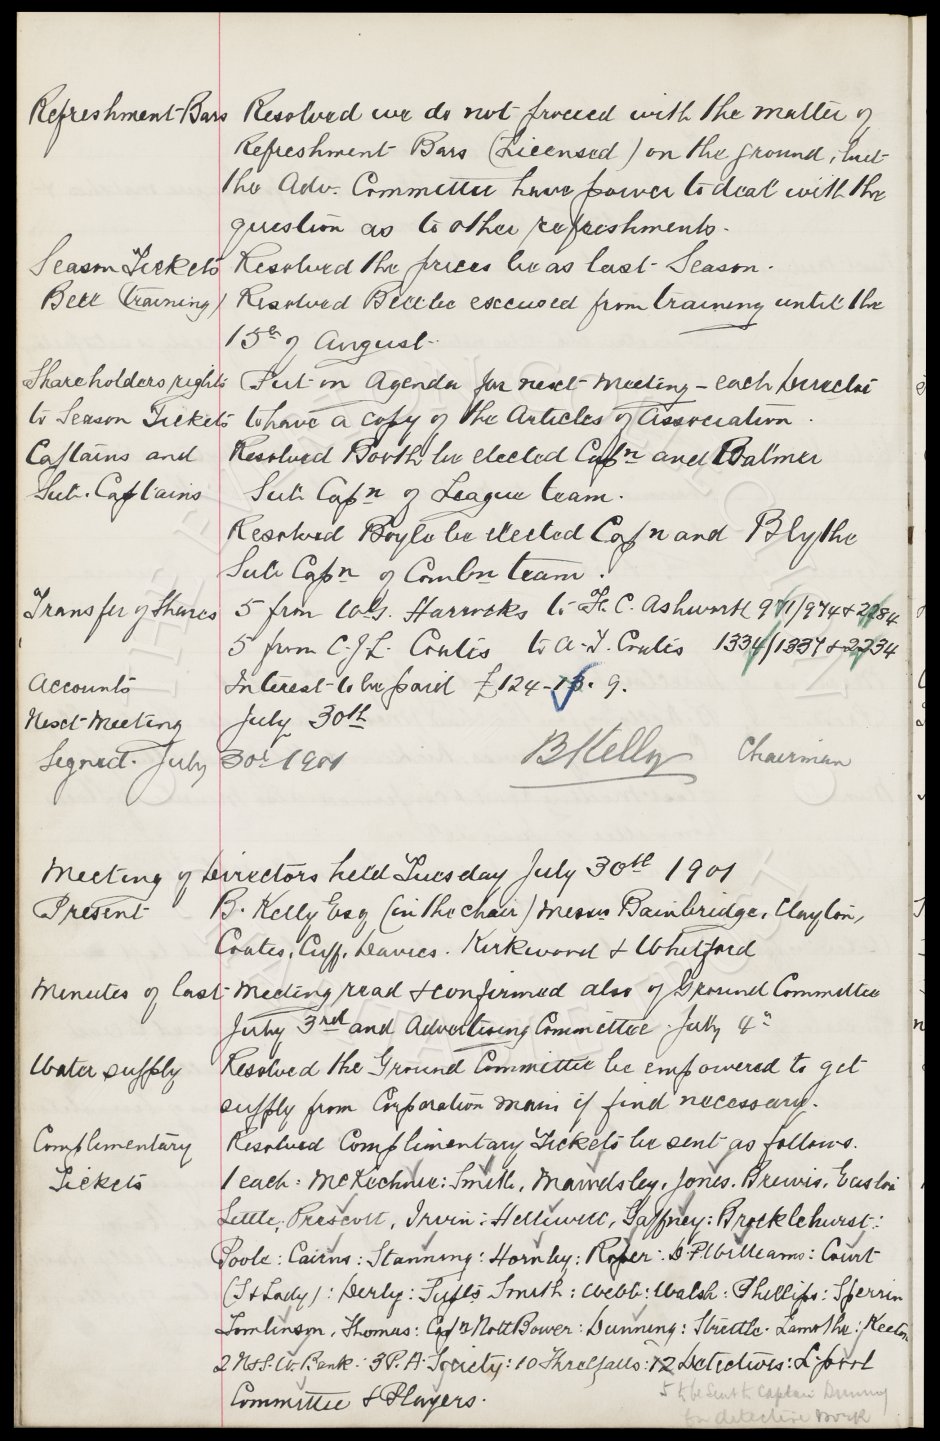 Refreshment Bars Resolved we do not proceed with the matter of
Refreshment Bars (Licensed) on the ground, but
the Adv. Committee have power to deal with the
question as to other refreshments.
Season Tickets Resolved the prices be as last Season.
Bell (training) Resolved Bell be excused from training until the
15th of August.
Shareholders rights Put on Agenda for next meeting - each Director
to Season Tickets to have a copy of the Articles of Association.
Captains and Resolved Booth be elected Capn and Balmer
Sub. Captains Sub Capn of League team.
Resolved Boyle be elected Capn and Blythe
Sub Capn of Combn team.
Transfer of Shares 5 from W.G. Harrocks to H. C. Ashworth 971/974 & 2284
5 from C.J.L. Coates to A.T. Coates 1334/1337 & 2234
Accounts Interest to be paid £124-13. 9.
Next Meeting July 30th
Signed. July 30th 1901 B Kelly Chairman
Meeting of Directors held Tuesday July 30th 1901
Present B. Kelly Esq (in the chair) Messrs Bainbridge, Clayton,
Coates, Cuff, Davies. Kirkwood & Whitford
Minutes of last meeting read & confirmed also of Ground Committee
July 3rd and Advertising Committee July 4th
Water supply Resolved the Ground Committee be empowered to get
supply from Corporation main if find necessary.
Complimentary Resolved Complimentary Tickets be sent as follows.
Tickets 1 each: McKechnie: Smith, Mawdsley, Jones. Brewis, Easton
Settle, Prescott, Irvin: Helliwell, Gaffney: Brocklehurst:
Poole: Cairns: Stanning: Hornby: Roper: D P Williams: Court
(1 & Lady): Derby: Supts Smith: Webb: Walsh: Phillips: Sperrin
Tomlinson, Thomas: Capn Nott Bower: Dunning: Strettle. Lamothe: Keeton
2 N & S. W. Bank: 3 P.A. Society: 10 Threlfalls: 12 Detectives: L.pool
Committee & Players. 5 to be sent to Captain Dunning
for detective work